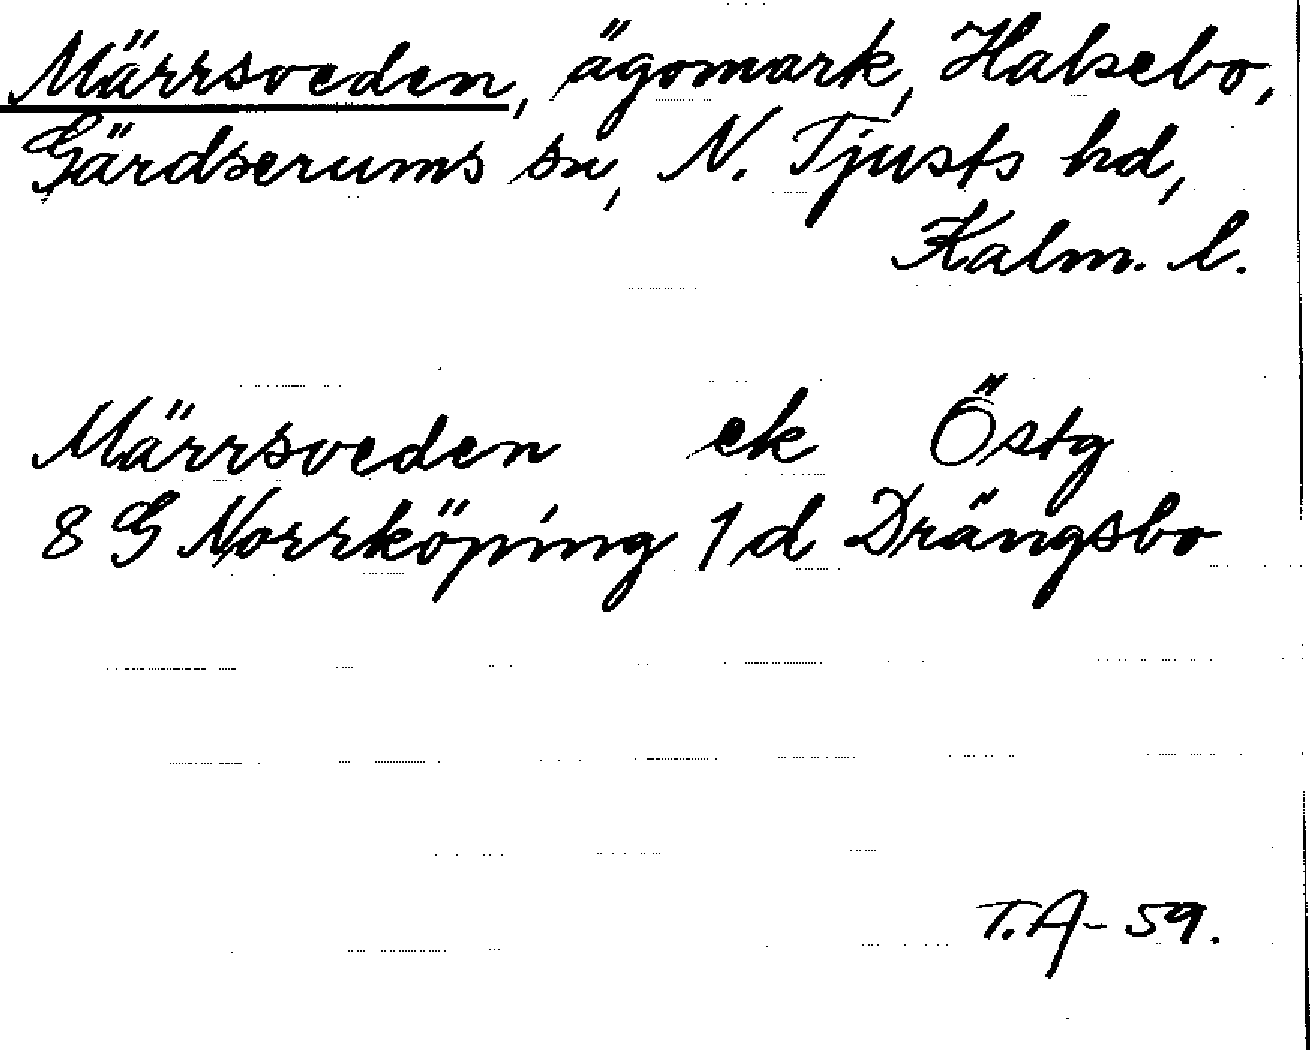 Märrsveden, ägomark, Halsebo,
Gärdserums sn, N. Tjusts hd,
Kalm. l.
Märrsveden ek Östg
8 G Norrköping 1 d Drängsbo
T.A-59.